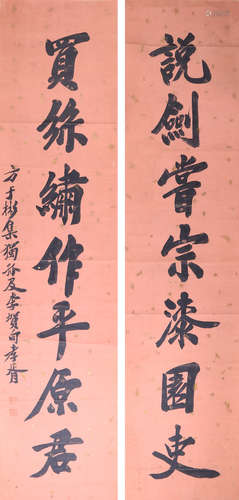 說劍嘗宗漆園吏
買絲繡作平原君
方子彬集獨孤及李賀句孝胥